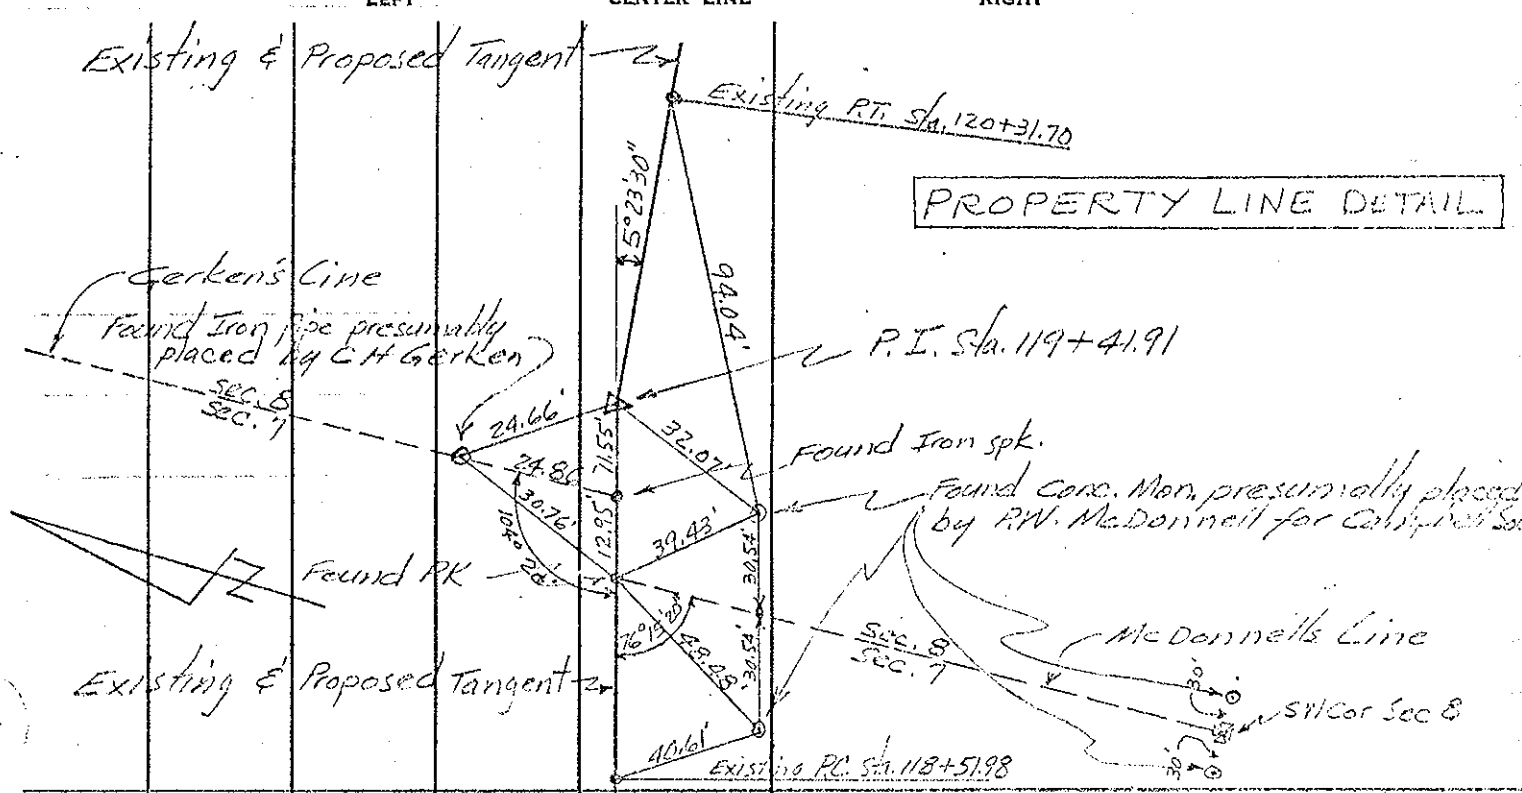 LEFT
CENTER LINE
RIGHT
Existing & Proposed Tangent
Existing P.T. Sta. 120+31.70
5°23'30"
PROPERTY LINE DETAIL
94.04'
Gerken's Line
Found Iron pipe presumably
placed by C H Gerken
P.I. Sta. 119+41.91
Sec. 8
Sec. 7
24.66'
71.55'
32.07'
Found Iron spk.
24.86
30.76'
12.95'
39.43'
30.54'
Found Conc. Mon. presumably placed
by R.W. McDonnell for Campbell
104°
Found PK
76°15'20"
49.48'
30.54'
Sec. 8
Sec. 7
McDonnell's Line
30'
SW Cor Sec 8
30'
Existing & Proposed Tangent
40.61'
Existing P.C. Sta. 118+51.98